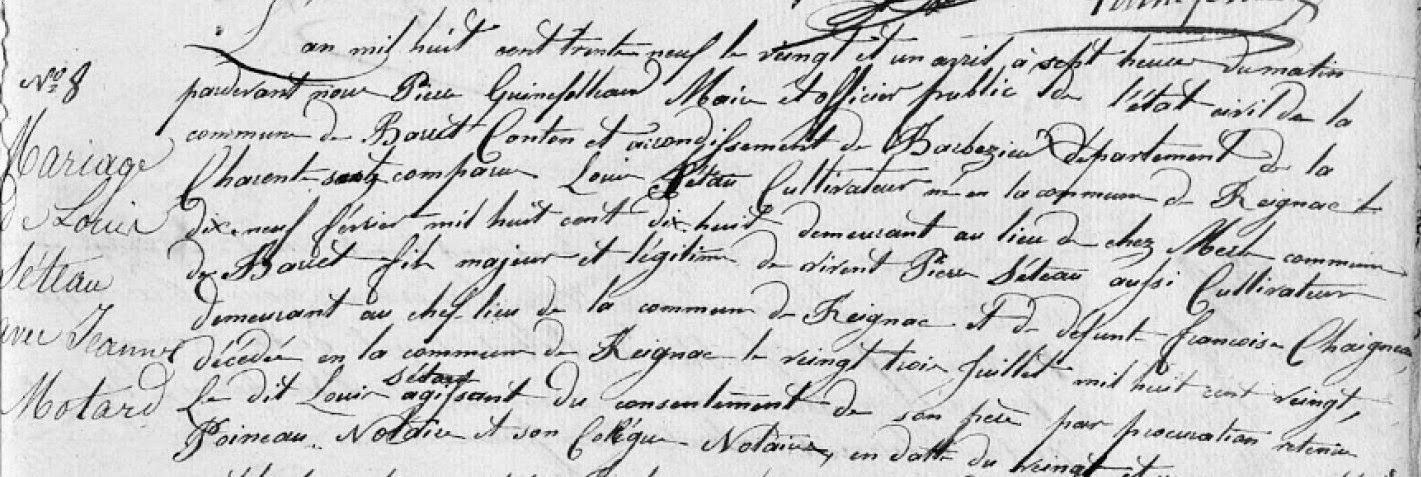 N.º 8
Mariage
de Louis
Séteau
avec Jeanne
Motard
L'an mil huit cent trente neuf le vingt et un avril à sept heures du matin
pardevant nous Pierre Maire et officier public de l'état civil de la
commune de Barret Canton et arrondissement de Barbezieux département de la
Charente comparu Louis Cultivateur né en la commune de Reignac le
dix neuf février mil huit cent dix-huit demeurant au lieu de chez Merle commune
de Barret fils majeur et légitime de vivent Pierre Séteau aussi Cultivateur
demeurant au chef lieu de la commune de Reignac et de défunte françoise Chaigneau,
décédée en la commune de Reignac le veingt trois Juillet mil huit cent veingt,
Le dit Louis agissant du consentement de son père par procuration retenue
Poineau Notaire et son Colégue Notaires, en datte du veingt et